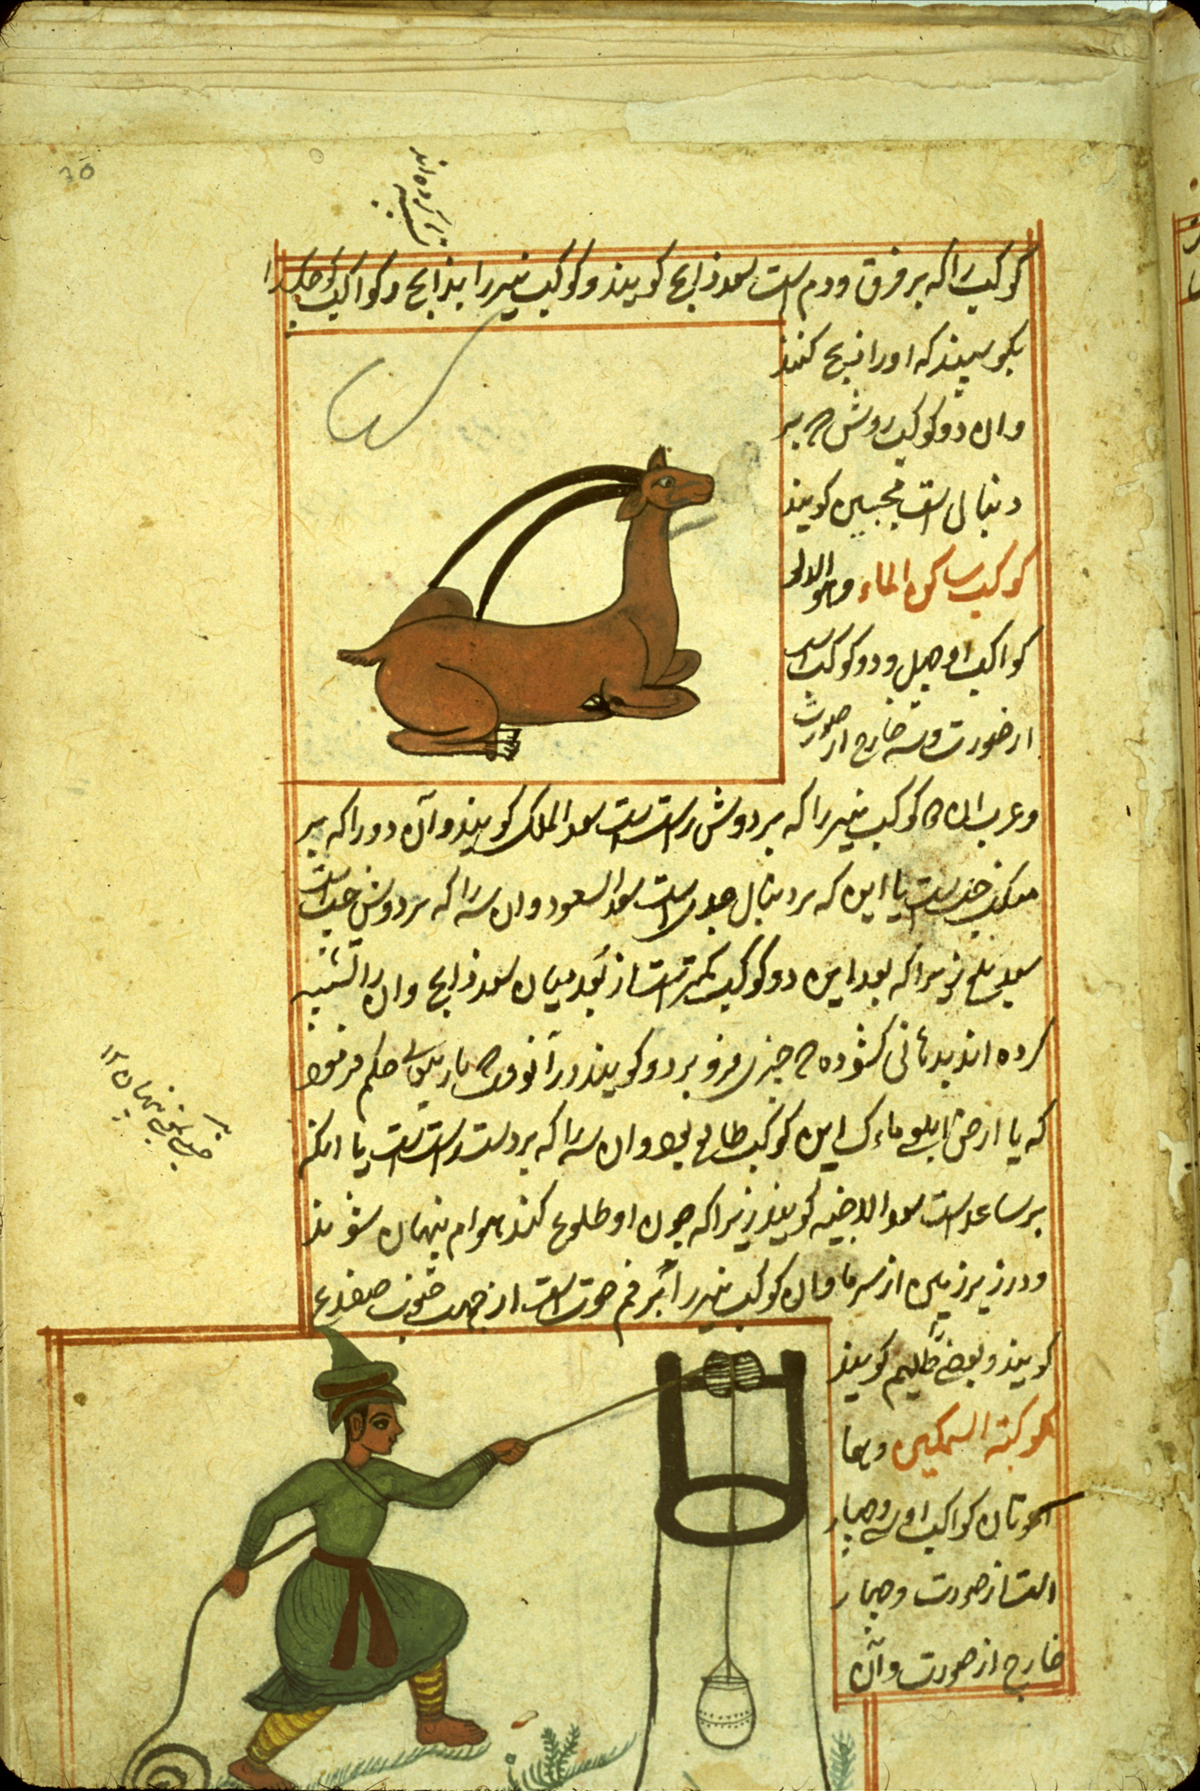 کوکب را که بر فرق ودم است سعد ذابح کویند و کوکب نیر را بذابح و کواکب کوچک را
بکوسپند که اورا ذبح کنند
وان دو کوکب روشن که بر
دنبال است محبین کویند
کوکب ساکب الماء وهو الدلو
کواکب او چهل و دو کوکب است
از صورت و سه خارج از صورت
و عرب ان کوکب نیر را که بر دوش راست است سعد الملک کویند وآن دو را که بر
منکب چپ است یا این که بر دنبال جدی است سعد السعود وان سه را که بر دوش چپ است
سعد بلع زیرا که بعد این دو کوکب کمتر است از بعد میان سعد ذابح وان را تشبیه
کرده اند بدهانی کشوده که چیزی فرو برد و کویند در آنوقت که باریتعالی حکم فرمود
که یا ارض ابلعی ماءک این کوکب طالع بود وان سه را که بر دست راست است یا انکه
بر ساعد است سعد الاخبیه کویند زیرا که چون او طلوع کند هوام پنهان شوند
و در زیر زمین از سرما وان کوکب نیر را که بر فم حوت است از جهت جنوب ضفدع
کویند و بعضی ظلیم کویند
کوکبة السمکتین وهما
الحوتان کواکب او سی وچهار
است از صورت وچهار
خارج از صورت وآن